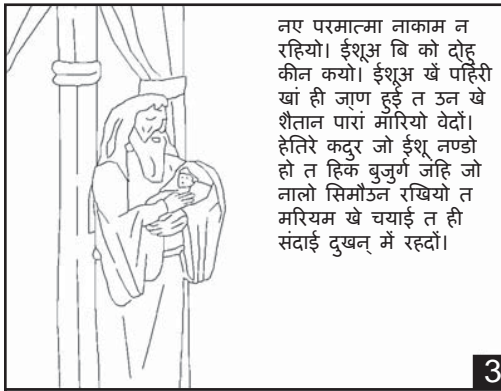 नए परमात्मा नाकाम न
रहियो। ईशूअ बि को दो॒हु
कीन कयो। ईशूअ खें पहिंरी
खां ही जा॒ण हुई त उन खे
शैतान पारां मारियो वेदों।
हेतिरे कदुर जो ईशू नण्डो
हो त हिक बुजुर्ग जंहि जो
नालो सिमौउन रखियो त
मरियम खे चयाई त ही
संदाई दुखन् में रहदों।
3